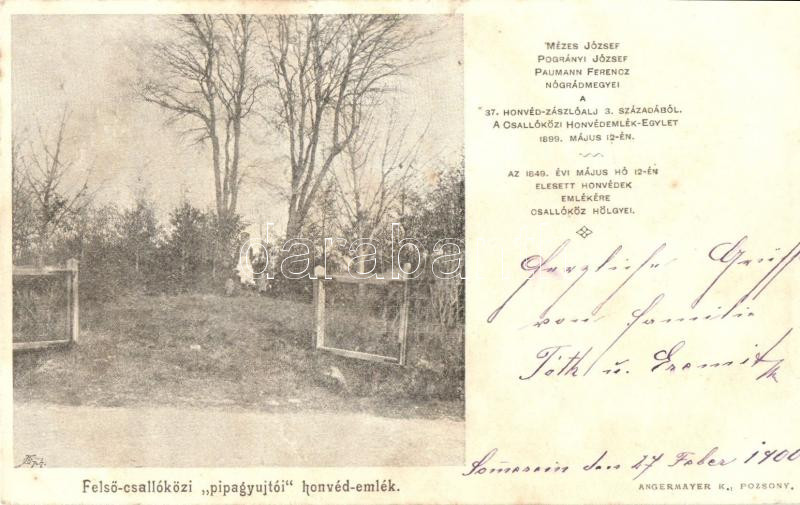 Mézes József
Pogrányi József
Paumann Ferencz
nógrádmegyei
a
37. honvéd-zászlóalj 3. századából.
A Csallóközi Honvédemlék-Egylet
1899. május 12-én.
Az 1849. évi május hó 12-én
elesett honvédek
emlékére
Csallóköz hölgyei.
darabanth.com
Herzliche Grüße
von Familie
Tóth u.
Somerein den 27 Feber 1900
Felső-csallóközi „pipagyujtói" honvéd-emlék.
Angermayer K., Pozsony.